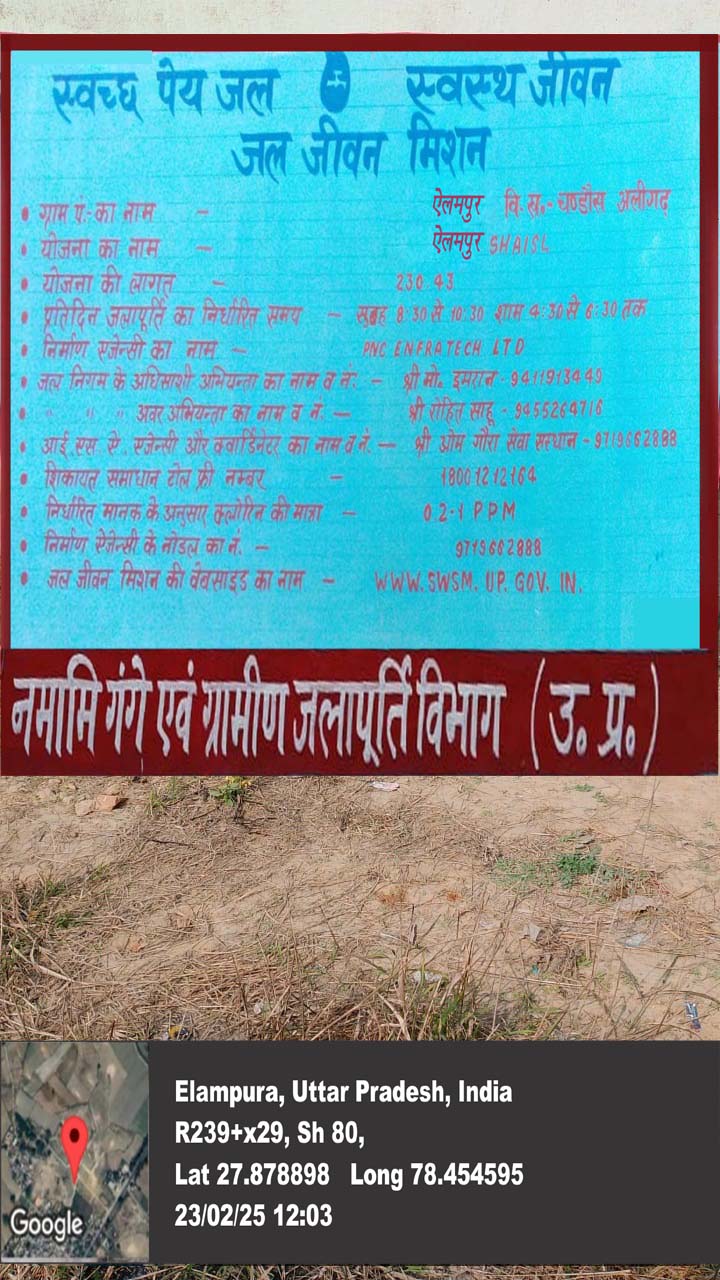 स्वच्छ पेय जल स्वस्थ जीवन
जल जीवन मिशन
• ग्राम पं.- का नाम – ऐलमपुर वि.ख.- चण्डौस अलीगढ़
• योजना का नाम – ऐलमपुर SHAISL
• योजना की लागत – 230.43
• प्रतिदिन जलापूर्ति का निर्धारित समय – सुबह 8:30 से 10:30 शाम 4:30 से 6:30 तक
• निर्माण एजेन्सी का नाम – PNC ENFRATECH LTD
• जल निगम के अधिसाशी अभियन्ता का नाम व नं. – श्री मो. इमरान - 9411913449
• " " " अवर अभियन्ता का नाम व नं. – श्री रोहित साहू - 9455264716
• आई. एस. ए. एजेन्सी और क्वार्डिनेटर का नाम व नं. – श्री ओम गौरा सेवा संस्थान - 9719662888
• शिकायत समाधान टोल फ्री नम्बर – 18001212164
• निर्धारित मानक के अनुसार क्लोरिन की मात्रा – 0.2-1 PPM
• निर्माण ऐजेन्सी के नोडल का नं. – 9719662888
• जल जीवन मिशन की वेबसाइड का नाम – WWW.SWSM.UP.GOV.IN.
नमामि गंगे एवं ग्रामीण जलापूर्ति विभाग (उ.प्र.)
Elampura, Uttar Pradesh, India
R239+x29, Sh 80,
Lat 27.878898 Long 78.454595
23/02/25 12:03
Google